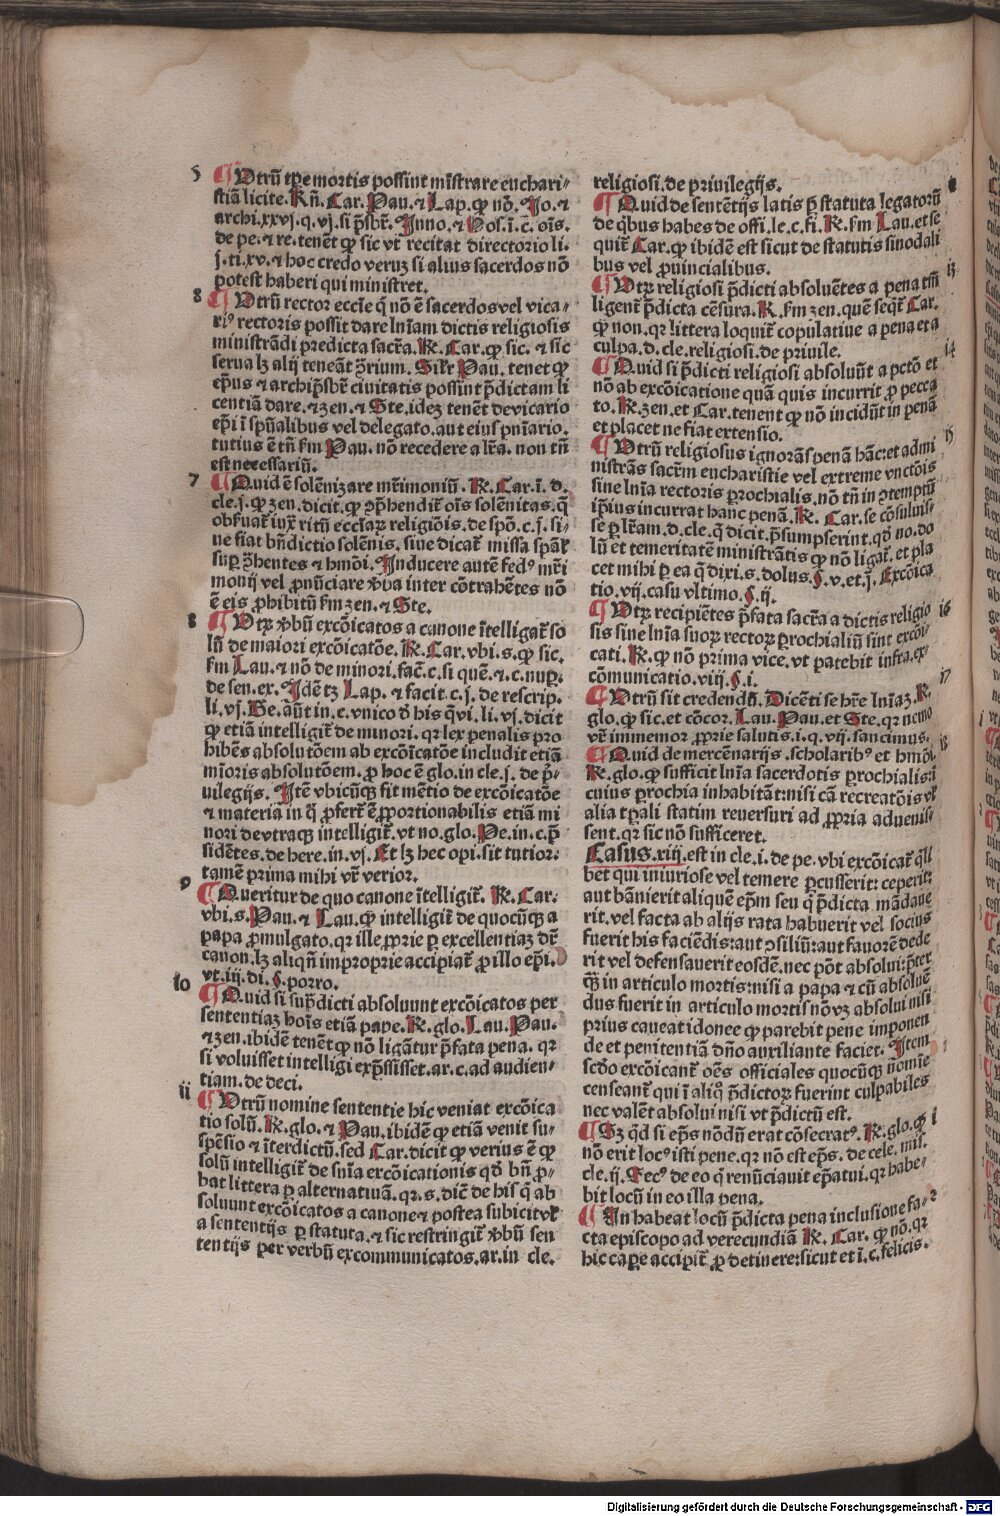 5 ¶ Utrū tp̄e mortis possint mīstrare euchari-
stiā licite. Rn̄. Car. Pau. ⁊ Lap. ꝙ nō. Jo. ⁊
archi. xxvj. q. vj. si p̄sbr̄. Inno. ⁊ Hos. ī. c. oīs.
de pe. ⁊ re. tenēt ꝙ sic vt recitat directorio li.
j. ti. xv. ⁊ hoc credo veruȝ si alius sacerdos nō
potest haberi qui ministret.
8 ¶ Utrū rector eccīe q̄ nō ē sacerdos vel vica-
riꝰ rectoris possit dare ln̄iam dictis religiosis
ministrādi predicta sacr̄a. R̄. Car. ꝙ sic. ⁊ sic
serua lȝ alij teneāt ꝯ̄rium. Silr̄ Pau. tenet ꝙ
ep̄us ⁊ archip̄sbr̄ ciuitatis possint p̄dictam li
centiā dare. ⁊ zen. ⁊ Ste. ideȝ tenēt de vicario
ep̄i ī sp̄ualibus vel delegato. aut eius pn̄iario.
tutius ē tn̄ fm Pau. nō recedere a lr̄a. non tn̄
est necessariū.
7 ¶ Quid ē solēnizare mr̄imoniū. R̄. Car. ī. d.
cle. j. ꝙ zen. dicit. ꝙ ꝯp̄hendit̄ oīs solēnitas. q̄
obseruat̄ iux̄ ritū eccīaꝝ religiōis. de spō. c. j. si-
ue fiat bn̄dictio solēnis. siue dicat̄ missa spāƚ
suꝑ ꝯ̄hentes ⁊ hmōi. Inducere autē fedꝰ mr̄i
monij vel ꝓnūciare v̄ba inter cōtrahētes nō
ē eis ꝓhibitū fm zen. ⁊ Ste.
8 ¶ Utrꝝ v̄bū excōicatos a canone ītelligat̄ so
lū de maiori excōicatōe. R̄. Car. vbi. s. ꝙ sic.
fm Lau. ⁊ nō de minori. fac̄. c. si quē. ⁊ c. nuꝑ.
de sen. ex. Idē tȝ Lap. ⁊ facit c. j. de rescrip.
li. vj. Ge. aūt in. c. vnico d̄ his q̄ vi. li. vj. dicit
ꝙ etiā intelligit̄ de minori. qr lex penalis pro
hibēs absolutōem ab excōicatōe includit etiā
mīoris absolutōem. ꝓ hoc ē glo. in cle. j. de p̄-
uilegijs. Itē vbicūqȝ fit mētio de excōicatōe
⁊ materia in q̄ ꝓfert̄ ē ꝓportionabilis etiā mi
nori de vtraqȝ intelligit̄. vt no. glo. Pe. in. c. p̄
sidētes. de here. in. vj. Et lȝ hec opi. sit tutior:
tamē prima mihi vr̄ verior.
9 ¶ Queritur de quo canone ītelligit̄. R̄. Car.
vbi. s. Pau. ⁊ Lau. ꝙ intelligit̄ de quocūqȝ a
papa ꝓmulgato. qr ille ꝓprie ꝑ excellentiaȝ dr̄
canon. lȝ aliqn̄ improprie accipiat̄ ꝓ illo ep̄i.
vt. iij. di. §. porro.
10 ¶ Quid si sup̄dicti absoluunt excōicatos per
sententiaȝ hoīs etiā pape. R̄. glo. Lau. Pau.
⁊ zen. ibidē tenēt ꝙ nō ligātur p̄fata pena. qr
si voluisset intelligi exp̄ssisset. ar. c. ad audien-
tiam. de deci.
11 ¶ Utrū nomine sententie hic veniat excōica
tio solū. R̄. glo. ⁊ Pau. ibidē ꝙ etiā venit su-
spēsio ⁊ īterdictū. sed Car. dicit ꝙ verius ē ꝙ
solū intelligit̄ de sn̄ia excōicationis qd̄ bn̄ ꝓ-
bat littera ꝑ alternatiuā. qr. s. dic̄ de his q̄ ab
soluunt excōicatos a canone ⁊ postea subicit vƚ
a sententijs ꝑ statuta. ⁊ sic restringit̄ v̄bū sen
tentijs per verbū excommunicatos. ar. in cle.
religiosi. de priuilegijs.
¶ Quid de sentētijs latis ꝑ statuta legatorū
de q̄bus habes de offi. le. c. fi. R̄. fm Lau. et se
quit̄ Car. ꝙ ibidē est sicut de statutis sinodali
bus vel ꝓuincialibus.
13 ¶ Utrꝝ religiosi p̄dicti absoluētes a pena tm̄
ligent̄ p̄dicta cēsura. R̄. fm zen. quē seqt̄ Car.
ꝙ non. qr littera loquit̄ copulatiue a pena et a
culpa. d. cle. religiosi. de priuile.
14 ¶ Quid si p̄dicti religiosi absoluūt a pctō et
nō ab excōicatione quā quis incurrit ꝓ pecca
to. R̄. zen. et Car. tenent ꝙ nō incidūt in penā
et placet ne fiat extensio.
15 ¶ Utrū religiosus ignorās penā hāc: et admi
nistrās sacrm̄ eucharistie vel extreme vnctōis
sine lnīa rectoris ꝑrochialis. nō tn̄ in ꝯtemptū
ip̄ius incurrat hanc penā. R̄. Car. se cōsuluis-
se ꝑ lr̄am. d. cle. q̄ dicit. p̄sumpserint. qd̄ no. do
lū et temeritatē ministrātis ꝙ nō ligat̄. et pla
cet mihi ꝑ ea q̄ dixi. s. dolus. §. v. et. j. Excōica
tio. vij. casu vltimo. §. ij.
16 ¶ Utrꝝ recipiētes p̄fata sacr̄a a dictis religio
sis sine lnīa suoꝝ rectoꝝ ꝑrochialiū sint excōi-
cati. R̄. ꝙ nō prima vice. vt patebit infra. ex-
cōmunicatio. viij. §. i.
17 ¶ Utrū sit credendū. Dicēti se hr̄e lnīaȝ. R̄.
glo. ꝙ sic. et cōcor. Lau. Pau. et Ste. qr nemo
vr̄ immemor ꝓprie salutis. i. q. vij. sancimus.
18 ¶ Quid de mercēnarijs. scholaribꝰ et hmōi.
R̄. glo. ꝙ sufficit lnīa sacerdotis ꝑrochialis: ī
cuius ꝑrochia inhabitāt: nisi cā recreatōis vƚ
alia tꝑali statim reuersuri ad ꝓpria aduenis-
sent. qr sic nō sufficeret.
Casus. xiij. est in cle. i. de pe. vbi excōicat̄ qƚi
bet qui iniuriose vel temere ꝑcusserit: ceperit:
aut bānierit aliquē ep̄m seu q̄ p̄dicta mādaue
rit. vel facta ab alijs rata habuerit vel socius
fuerit his faciēdis: aut ꝯsiliū: aut fauorē dede
rit vel defensauerit eosdē. nec pōt absolui: p̄ter
qȝ in articulo mortis: nisi a papa ⁊ cū absoluē
dus fuerit in articulo mortis nō vȝ absolui nisi
prius caueat idonee ꝙ parebit pene imponen
de et penitentiā dn̄o auxiliante faciet. Item
scdo excōicant̄ oēs officiales quocūqȝ nomīe
censeant̄ qui ī aliqͦ p̄dictoꝝ fuerint culpabiles
nec valēt absolui nisi vt p̄dictū est.
1 ¶ Sȝ qd̄ si ep̄s nōdū erat cōsecratꝰ. R̄. glo. ꝙ
nō erit locꝰ isti pene. qr nō est ep̄s. de cele. mis.
cle. ij. Secꝰ de eo q̄ renūciauit ep̄atui. qr habe-
bit locū in eo illa pena.
2 ¶ An habeat locū p̄dicta pena inclusione fa-
cta episcopo ad verecundiā R̄. Car. ꝙ nō. qr
hic capere accipit̄ ꝓ detinere: sicut et ī. c. felicis.
Digitalisierung gefördert durch die Deutsche Forschungsgemeinschaft - DFG